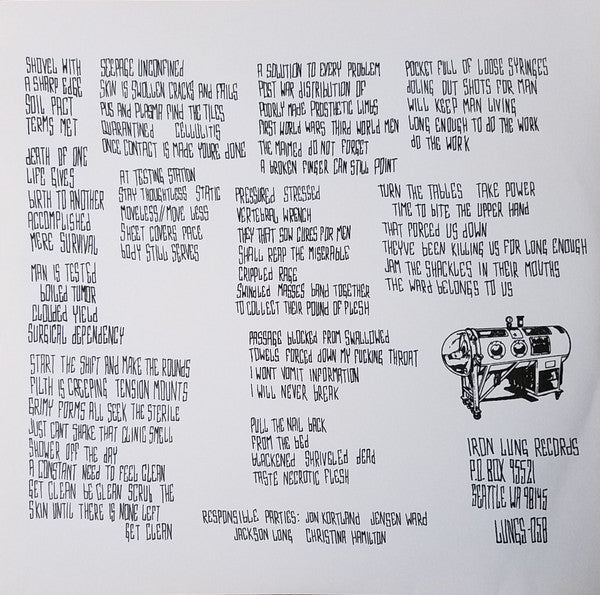 SHOVEL WITH
A SHARP EDGE
SOIL PACT
TERMS MET
DEATH OF ONE
LIFE GIVES
BIRTH TO ANOTHER
ACCOMPLISHED
MERE SURVIVAL
MAN IS TESTED
BOILED TUMOR
CLOUDED YIELD
SURGICAL DEPENDENCY
START THE SHIFT AND MAKE THE ROUNDS
FILTH IS CREEPING TENSION MOUNTS
GRIMY FORMS ALL SEEK THE STERILE
JUST CANT SHAKE THAT CLINIC SMELL
SHOWER OFF THE DAY
A CONSTANT NEED TO FEEL CLEAN
GET CLEAN BE CLEAN SCRUB THE
SKIN UNTIL THERE IS NONE LEFT
GET CLEAN
SEEPAGE UNCONFINED
SKIN IS SWOLLEN CRACKS AND FAILS
PUS AND PLASMA FIND THE TILES
QUARANTINED CELLULITIS
ONCE CONTACT IS MADE YOURE DONE
AT TESTING STATION
STAY THOUGHTLESS STATIC
MOVELESS//MOVE LESS
SHEET COVERS FACE
BODY STILL SERVES
A SOLUTION TO EVERY PROBLEM
POST WAR DISTRIBUTION OF
POORLY MADE PROSTHETIC LIMBS
FIRST WORLD WARS THIRD WORLD MEN
THE MAIMED DO NOT FORGET
A BROKEN FINGER CAN STILL POINT
PRESSURED STRESSED
VERTEBRAL WRENCH
THEY THAT SOW CURES FOR MEN
SHALL REAP THE MISERABLE
CRIPPLED RAGE
SWINDLED MASSES BAND TOGETHER
TO COLLECT THEIR POUND OF FLESH
PASSAGE BLOCKED FROM SWALLOWED
TOWELS FORCED DOWN MY FUCKING THROAT
I WONT VOMIT INFORMATION
I WILL NEVER BREAK
PULL THE NAIL BACK
FROM THE BED
BLACKENED SHRIVELED DEAD
TASTE NECROTIC FLESH
POCKET FULL OF LOOSE SYRINGES
DOLING OUT SHOTS FOR MAN
WILL KEEP MAN LIVING
LONG ENOUGH TO DO THE WORK
DO THE WORK
TURN THE TABLES TAKE POWER
TIME TO BITE THE UPPER HAND
THAT FORCED US DOWN
THEYVE BEEN KILLING US FOR LONG ENOUGH
JAM THE SHACKLES IN THEIR MOUTHS
THE WARD BELONGS TO US
IRON LUNG RECORDS
P.O. BOX 95521
SEATTLE WA 98145
LUNGS-058
RESPONSIBLE PARTIES: JON KORTLAND JENSEN WARD
JACKSON LONG CHRISTINA HAMILTON